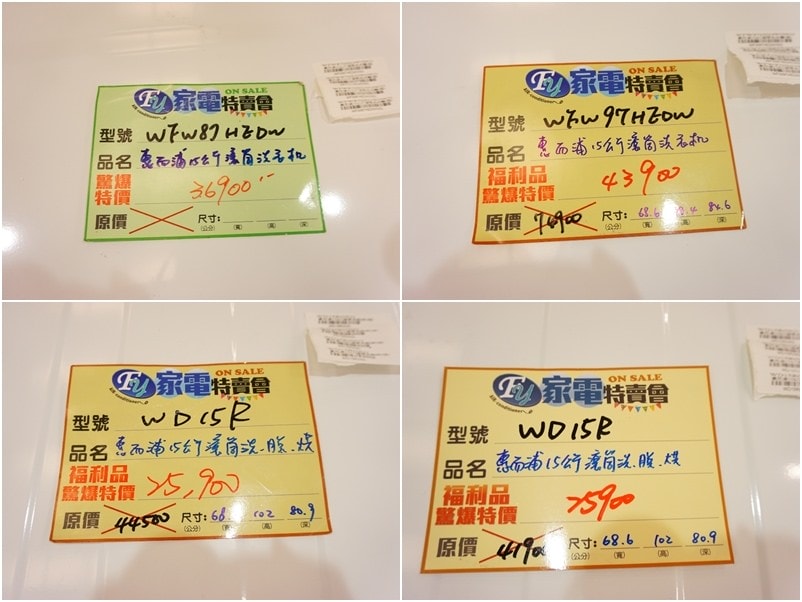 Fu 家電特賣會 ON SALE
型號 WFW87HEDW
品名 惠而浦15公斤滾筒洗衣机
驚爆特價 36900
原價 尺寸:
(公分) (寬) (高) (深)
Fu 家電特賣會 ON SALE
型號 WFW97HEDW
品名 惠而浦15公斤滾筒洗衣机
福利品
驚爆特價 43900
原價 76900 尺寸: 68.6 84.6
(公分) (寬) (高) (深)
Fu 家電特賣會 ON SALE
型號 WD15R
品名 惠而浦15公斤滾筒洗.脫.烘
福利品
驚爆特價 25,900
原價 44500 尺寸: 68. 102 80.9
(公分) (寬) (高) (深)
Fu 家電特賣會 ON SALE
型號 WD15R
品名 惠而浦15公斤滾筒洗.脫.烘
福利品
驚爆特價 25900
原價 41900 尺寸: 68.6 102 80.9
(公分) (寬) (高) (深)